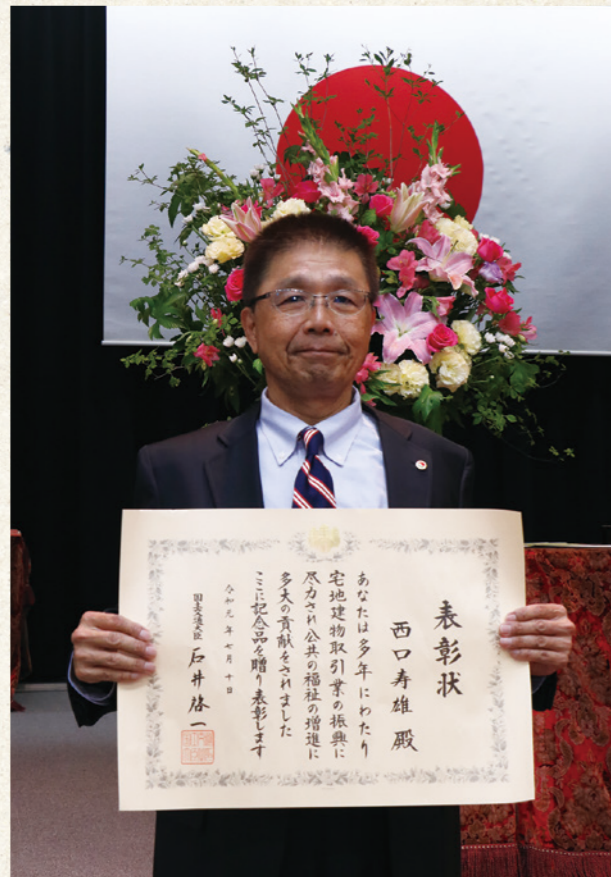 表彰状
西口寿雄 殿
あなたは多年にわたり
宅地建物取引業の振興に
尽力され公共の福祉の増進に
多大の貢献をされました
ここに記念品を贈り表彰します
令和元年七月十日
国土交通大臣 石井啓一